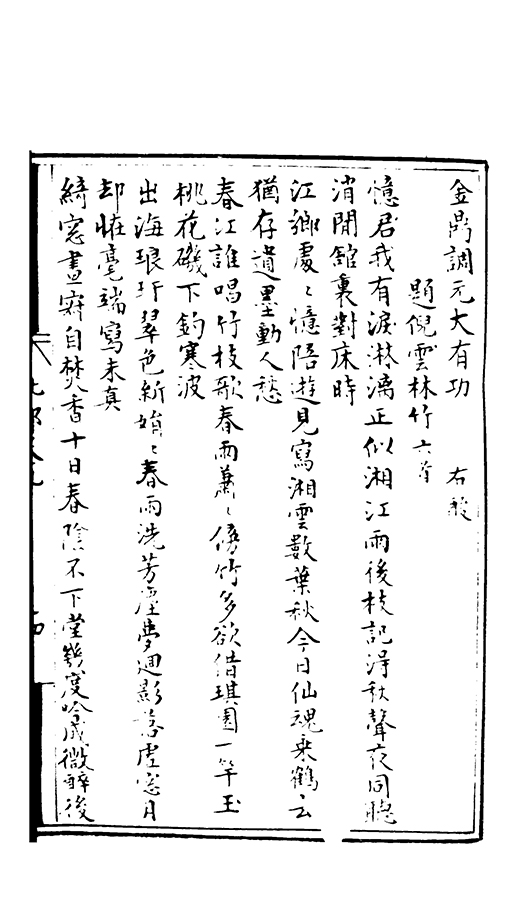 金鼎調元大有功 右酸
題倪雲林竹六首
憶君我有淚淋漓正似湘江雨後枝記浔秋聲夜同聽
消閒館裏對床時
江鄉處〻憶陪遊見寫湘雲數葉秋今日仙魂乘鶴去
猶存遺墨動人愁
春江誰唱竹枝歌春雨蕭〻倚竹多欲借琪園一竿玉
桃花磯下釣寒波
出海琅玕翠色新娟〻春雨洗芳塵夢迴影落虛窓月
却恠毫端寫未真
綺窓晝寂自焚香十日春陰不下堂幾度吟成微醉後